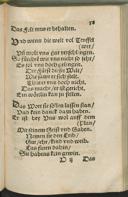 58
Das Felt mus er behalten.
Vnd wenn die welt vol Teuffel
(wer/
Vnd wolt vns gar verschlingen/
So fürchten wir vns nicht so sehr/
Es sol vns doch gelingen/
Der Fürst dieser Welt/
Wie sawr er sich stelt/
Thut er vns doch nicht/
Das macht/ er ist gericht/
Ein wörtlin kan jn fellen.
Das Wort sie söllen lassen stan/
Vnd kein danck dazu haben/
Er ist bey Vns wol auff dem
(Plan/
Mit seinem Geist vnd Gaben/
Nemen sie den Leib/
Gut/ehr/kind vnd weib/
Las faren dahin/
Sie habens kein gewin/
Das